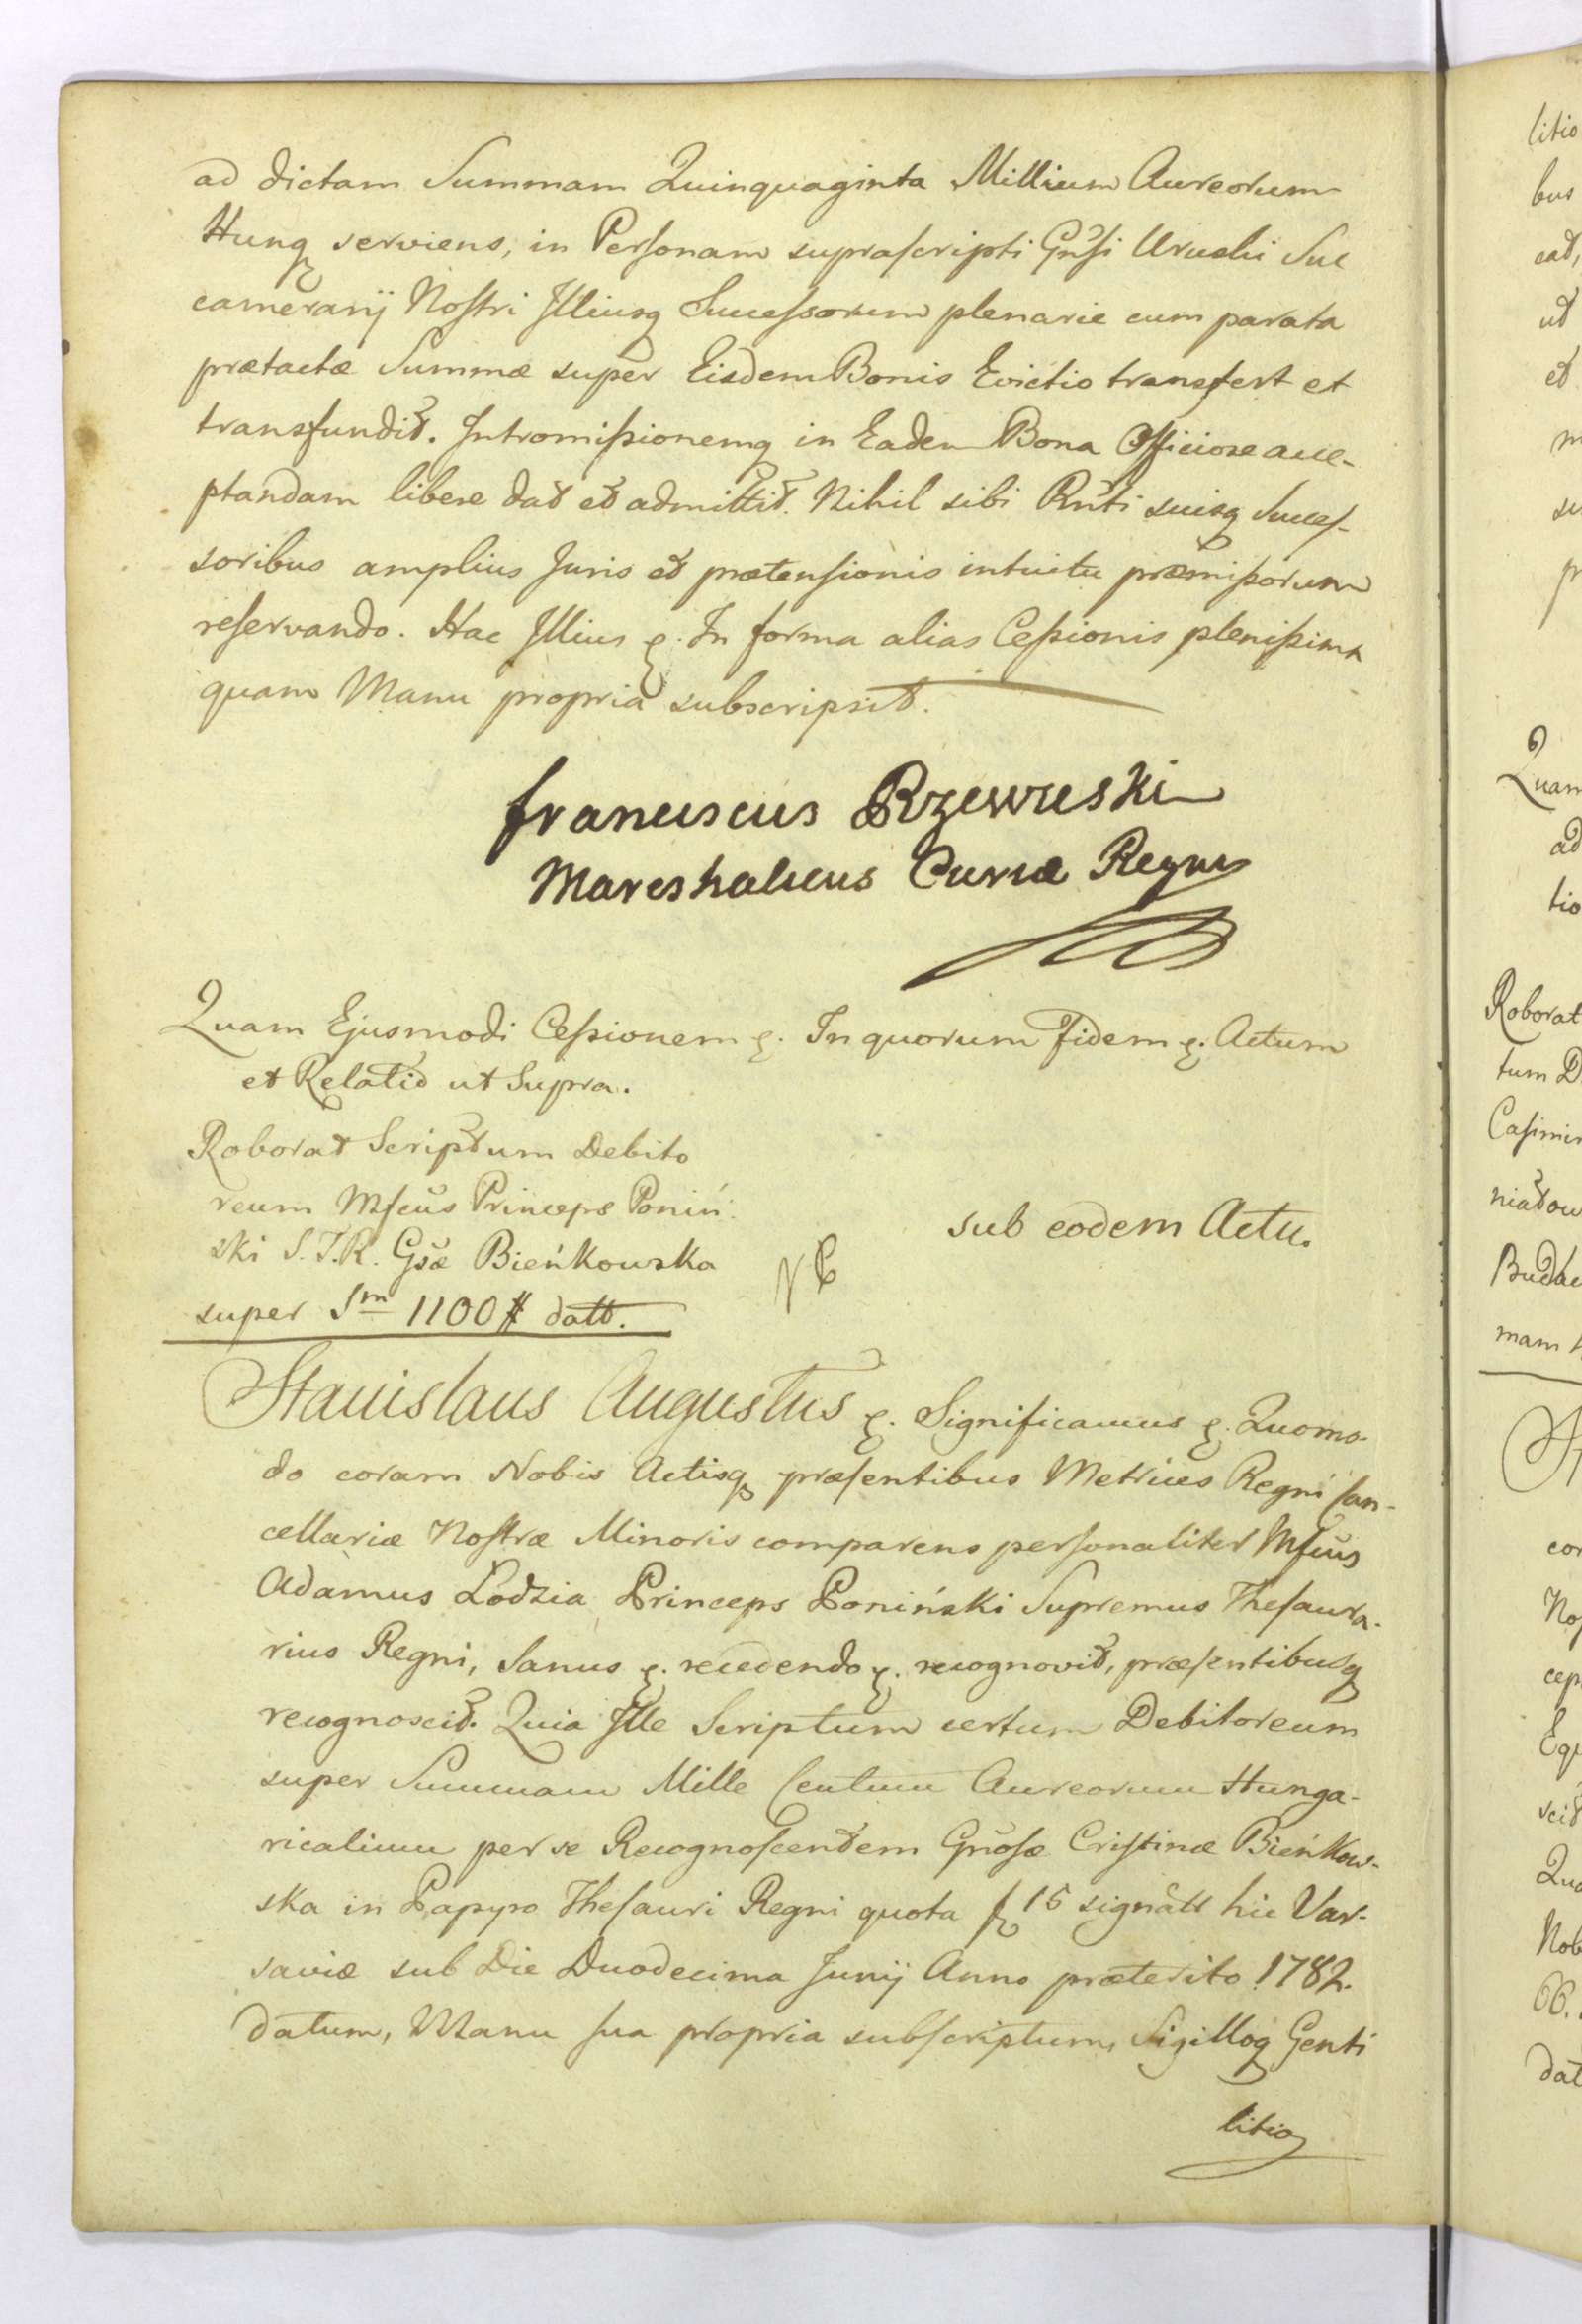 ad dictam Summam Quinquaginta Millium Aureorum
Hungq serviens, in Personam suprascripti Gnsi Uruski Suc
camerarij Nostri Illiusq Successorum plenarie cum parata
prætactæ Summæ super Eisdem Bonis Evictio transfert et
transfundit. Intromissionemq in Eadem Bona Officiose acce-
ptandam libere dat et admittit. Nihil sibi Rnti suisq Succes-
soribus amplius Juris et prætensionis intuitu præmissorum
reservando. Hac Illius &. In forma alias Cessionis plenissima
quam Manu propria subscripsit.
Franciscus Rzewuski
Mareshalcus Curiæ Regni
Quam Ejusmodi Cessionem &. In quorum Fidem &. Actum
et Relatio ut Supra.
Roborat Scriptum Debito
reum Mfcus Princeps Poniń
ski S.T.R. Gsæ Bieńkowska
super Sm 1100 # datt.
sub eodem Actu.
Stanislaus Augustus &. Significamus &. Quomo-
do coram Nobis Actisq præsentibus Metrices Regni Can-
cellariæ Nostræ Minoris comparens personaliter Mfcus
Adamus Łodzia Princeps Poniński Supremus Thesaura-
rius Regni, Sanus &. recedendo &. recognovit, præsentibusq
recognoscit. Quia Ille Scriptum certum Debitoreum
super Summam Mille Centum Aureorum Hunga-
ricalium per se Recognoscentem Gnosæ Cristinæ Bieńkow-
ska in Papyro Thesauri Regni quota f 15 signatt hic Var-
saviæ sub Die Duodecima Junij Anno præterito 1782.
datum, Manu sua propria subscriptum, Sigilloq Genti
litio
litio
bus
cat,
ut
et
Quam
ad
tio
Roborat
tum D
Casimir
niatow
Budze
mam
cor
Nos
cep
Equ
scit
Quo
Nob
66.
dat